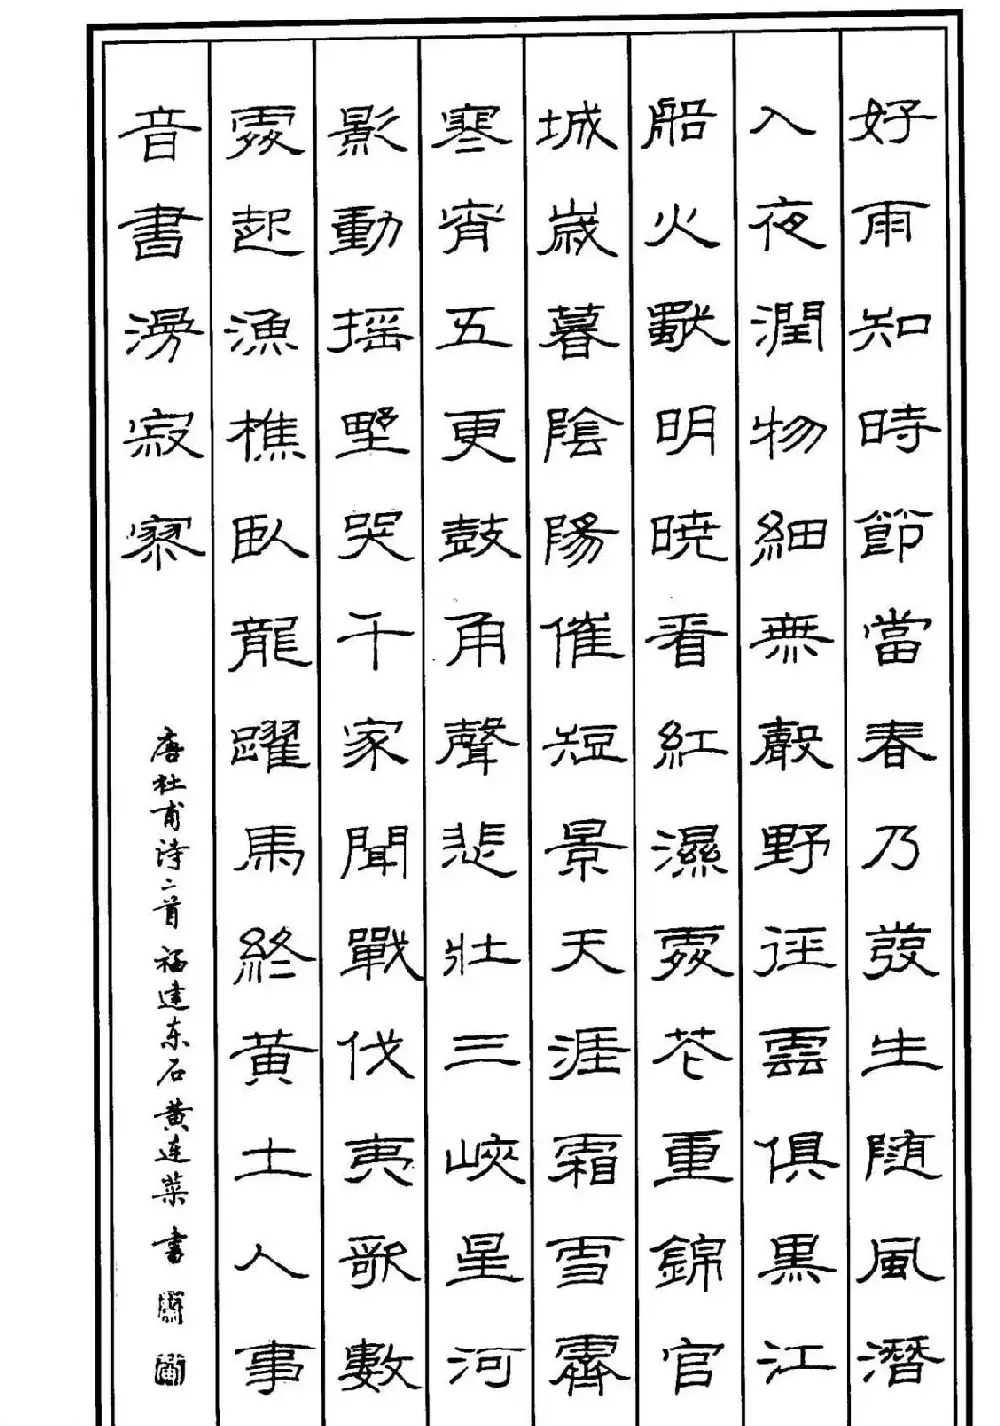 好雨知時節當春乃發生随風潛
入夜潤物細無聲野徑雲俱黑江
船火獸明曉看紅濕處花重錦官
城歲暮陰陽催短景天涯霜雪霽
寒宵五更鼓角聲悲壯三峽星河
影動摇野哭千家聞戰伐夷歌數
處起漁樵臥龍躍馬終黄土人事
音書漫寂寥
唐杜甫诗二首 福建东石黄连 書